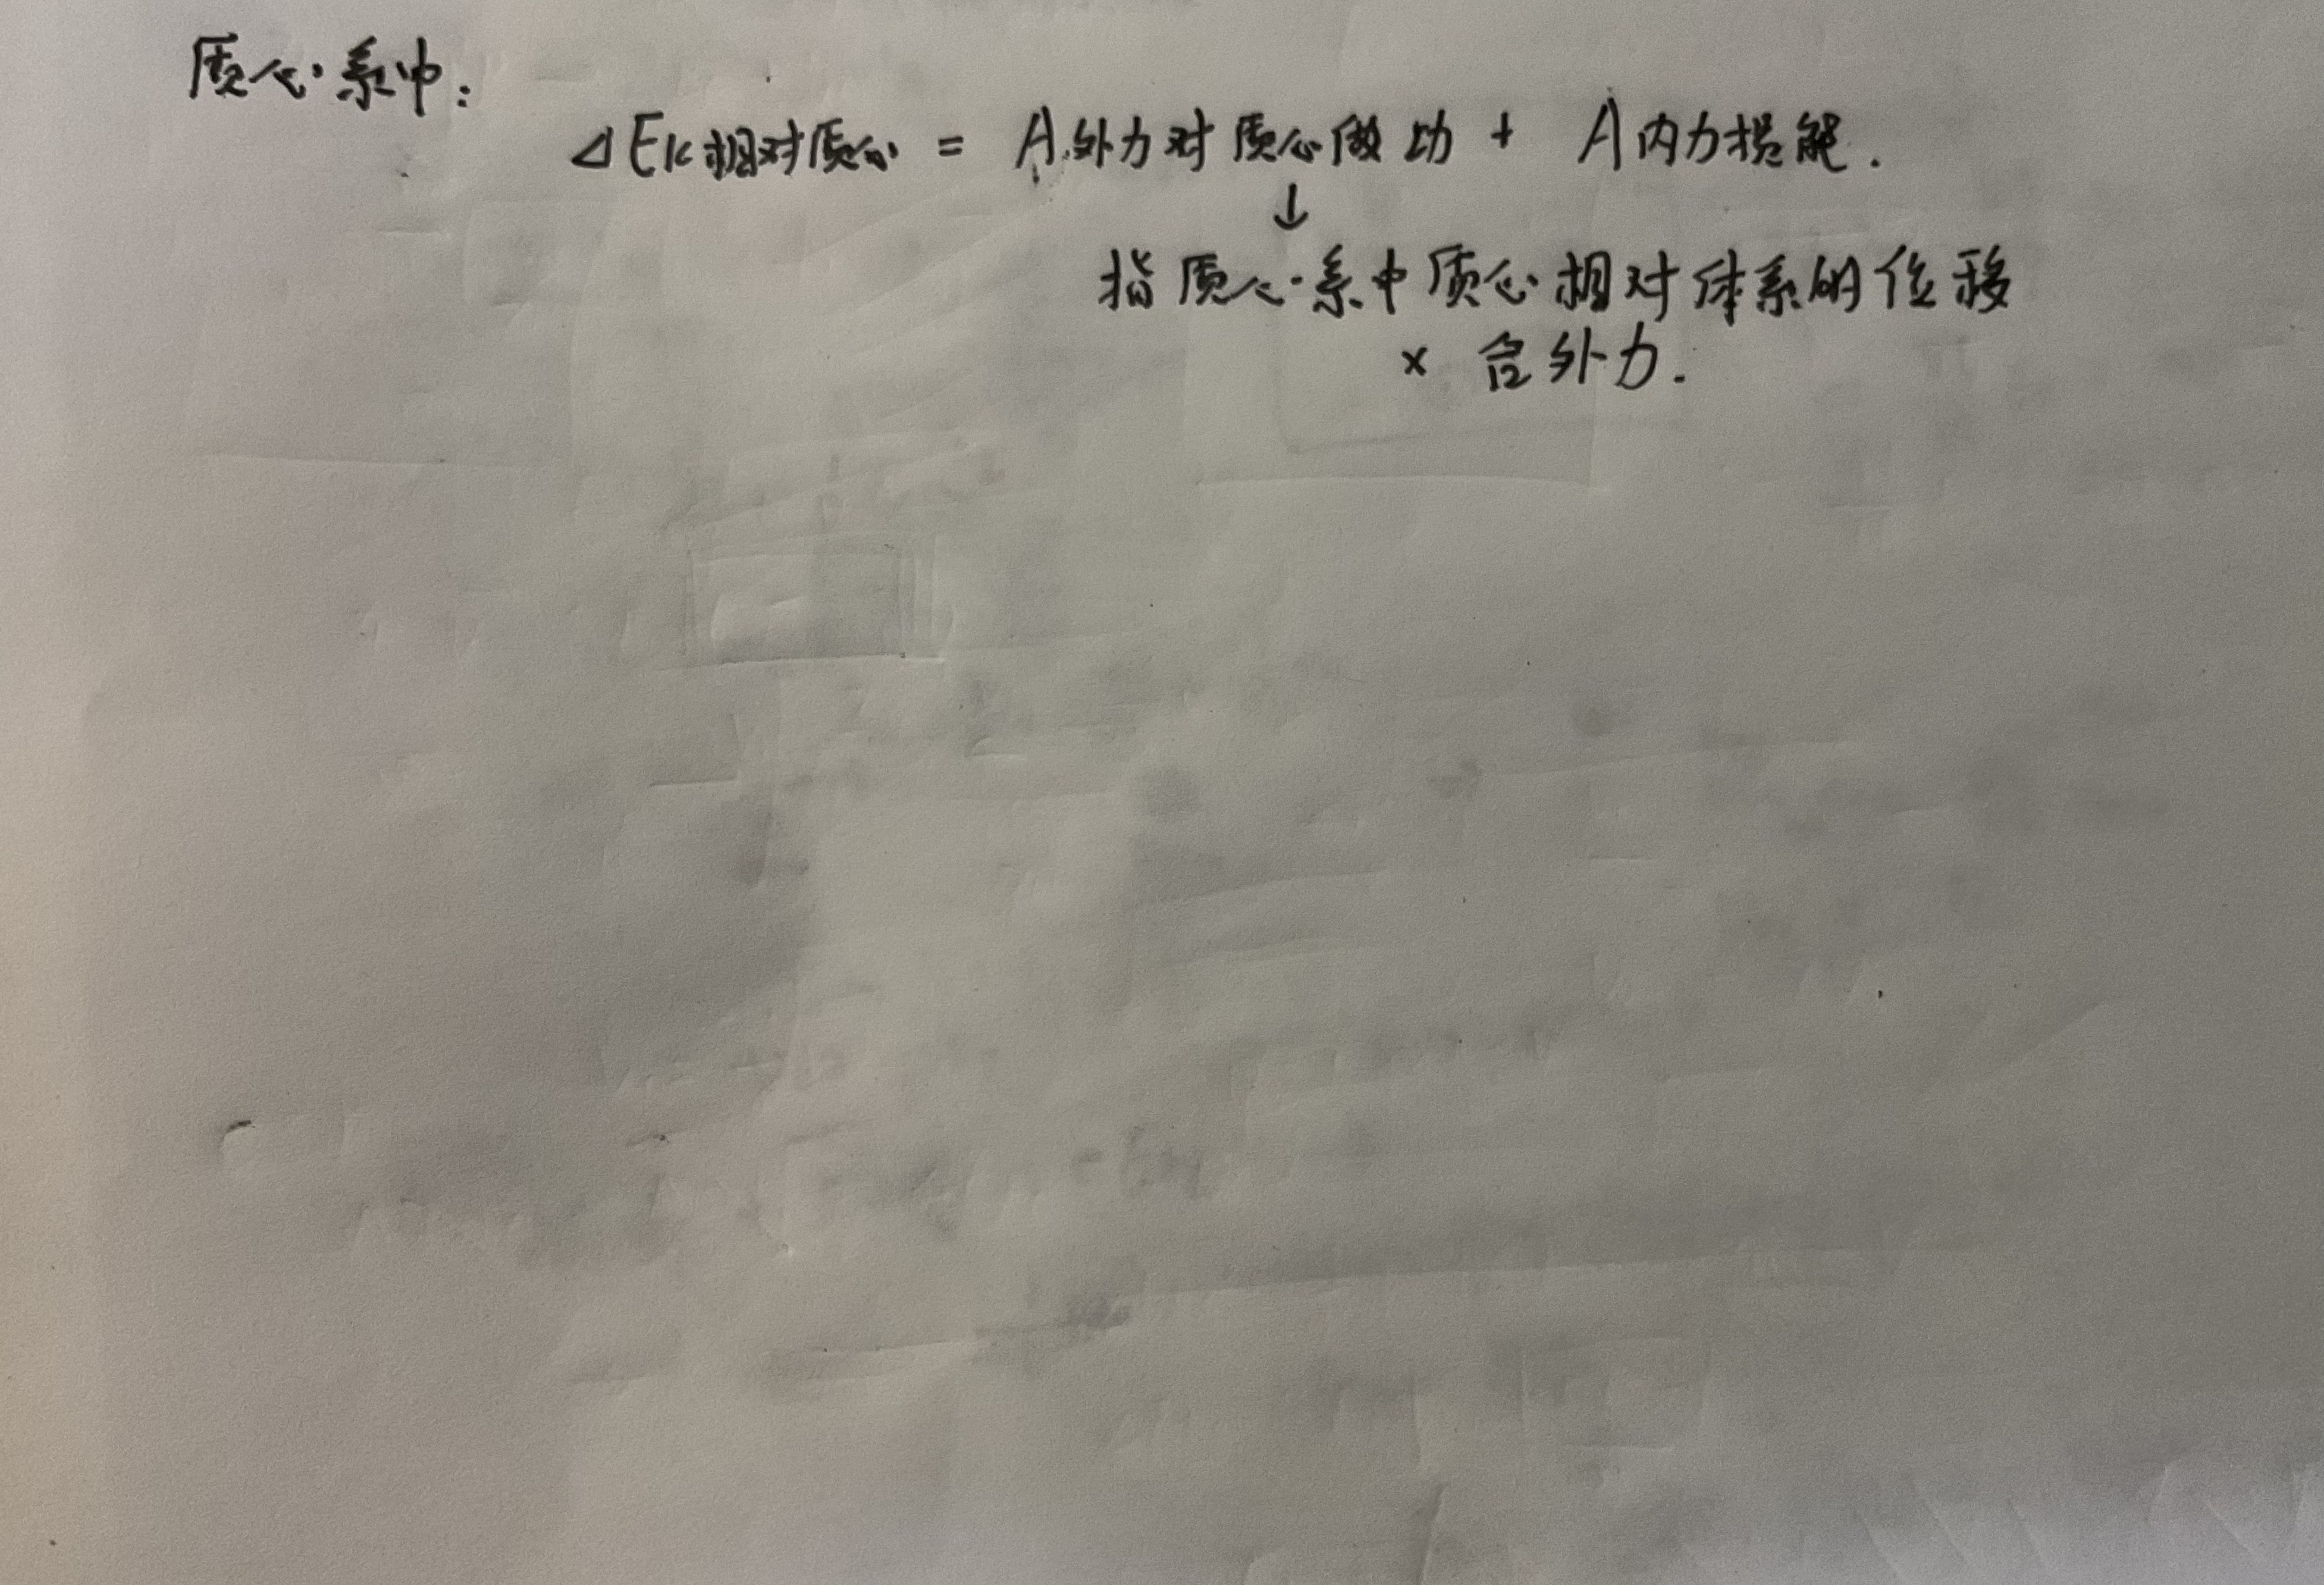 质心系中:
ΔEk相对质心 = A外力对质心做功 + A内力损能.
↓
指质心系中质心相对体系的位移
× 合外力.